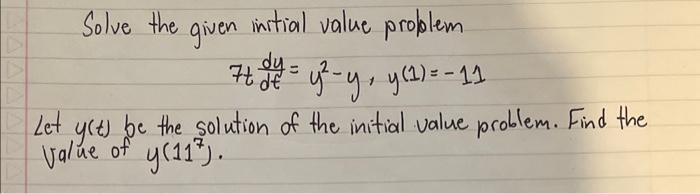 Solve the given initial value problem
7t dy/dt = y²-y, y(1)=-11
Let y(t) be the solution of the initial value problem. Find the
value of y(11⁷).